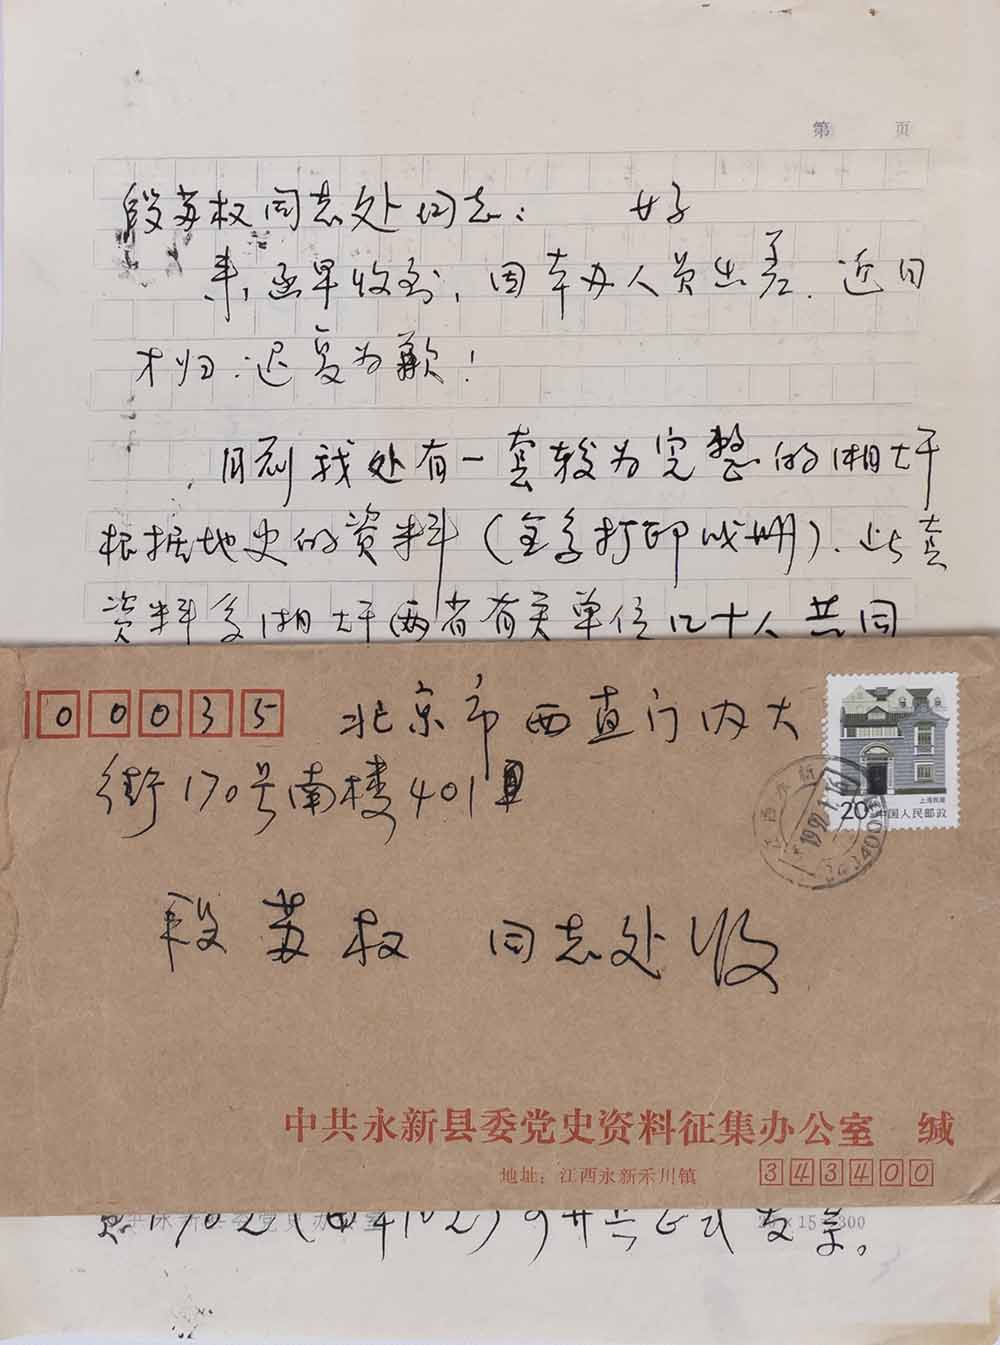 第 页
段苏权同志处同志： 好
来函早收到，因本办人员出差，近日
才归，迟复为歉！
目前我处有一套较为完整的湘赣
根据地史的资料（全系打印成册）．此套
资料系湘赣两省有关单位几十人共同
00035 北京市西直门内大
街170号南楼401
上海民居
20 中国人民邮政
段苏权 同志处收
中共永新县委党史资料征集办公室 缄
地址：江西永新禾川镇 343400